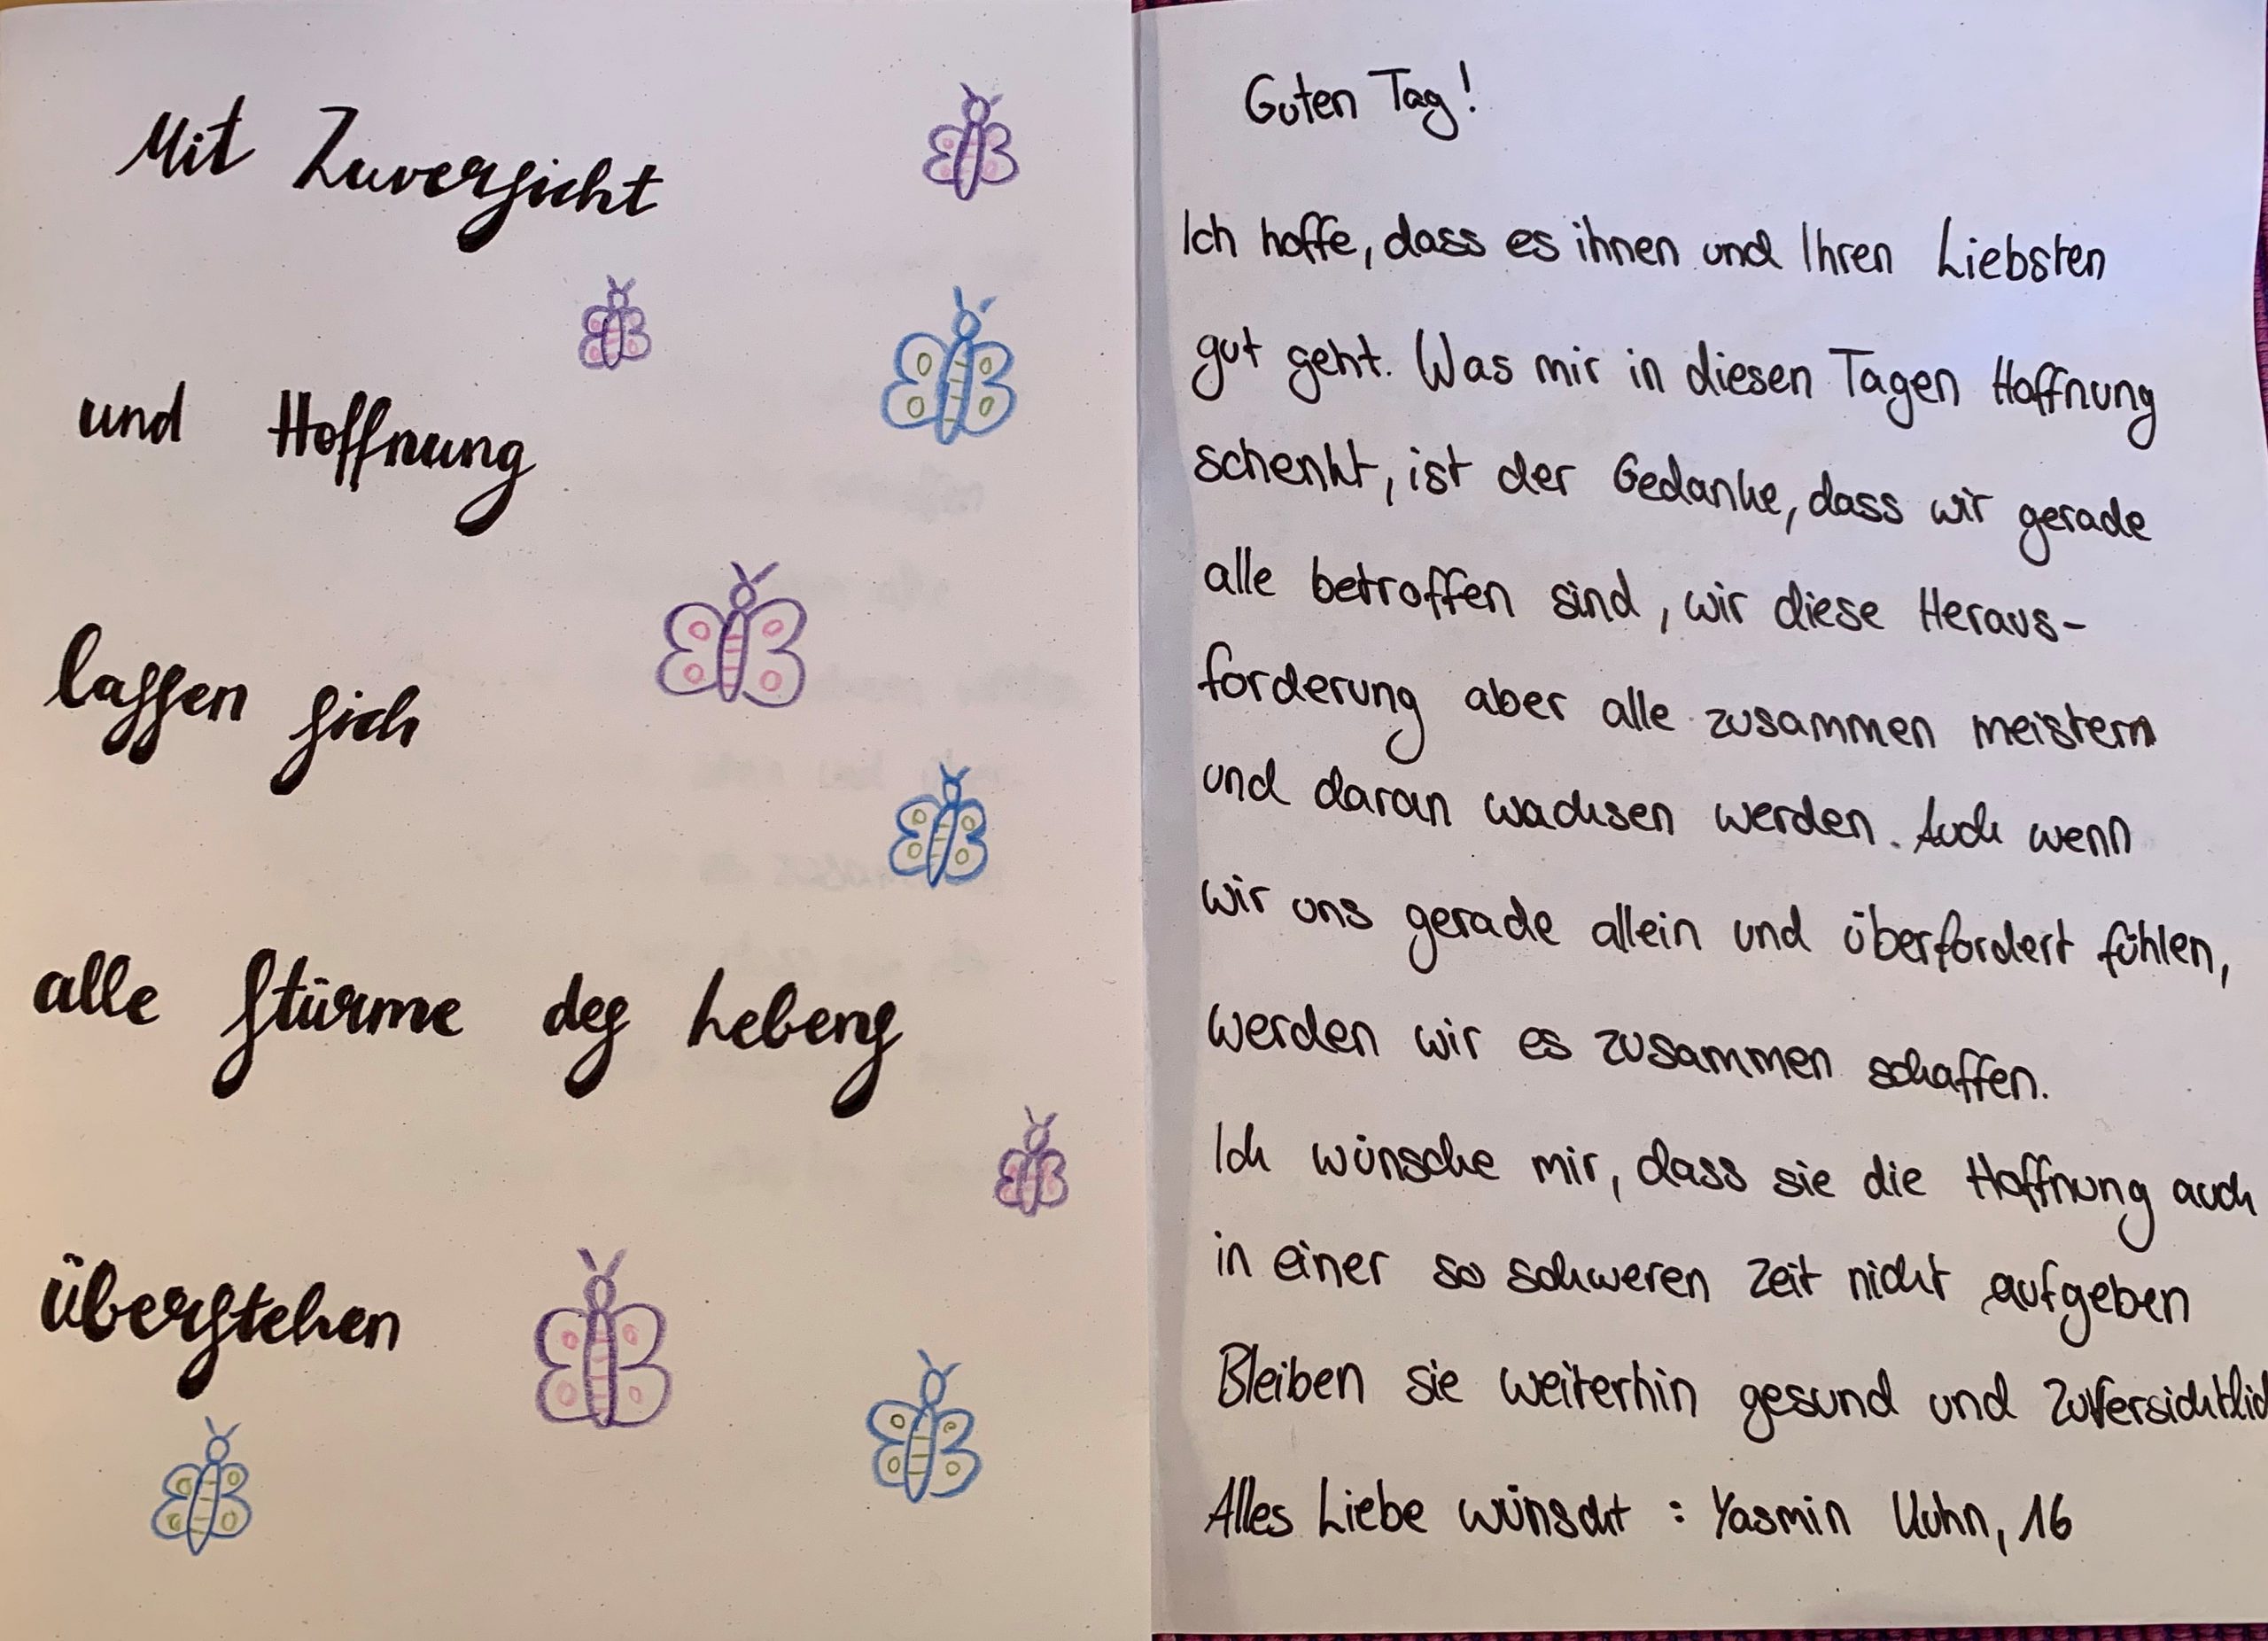 Mit Zuversicht
und Hoffnung
lassen sich
alle Stürme des Lebens
überstehen
Guten Tag!
Ich hoffe, dass es ihnen und Ihren Liebsten
gut geht. Was mir in diesen Tagen Hoffnung
schenkt, ist der Gedanke, dass wir gerade
alle betroffen sind, wir diese Heraus-
forderung aber alle zusammen meistern
und daran wachsen werden. Auch wenn
wir uns gerade allein und überfordert fühlen,
werden wir es zusammen schaffen.
Ich wünsche mir, dass sie die Hoffnung auch
in einer so schweren Zeit nicht aufgeben
Bleiben sie weiterhin gesund und
Alles Liebe wünscht : Yasmin Kuhn, 16